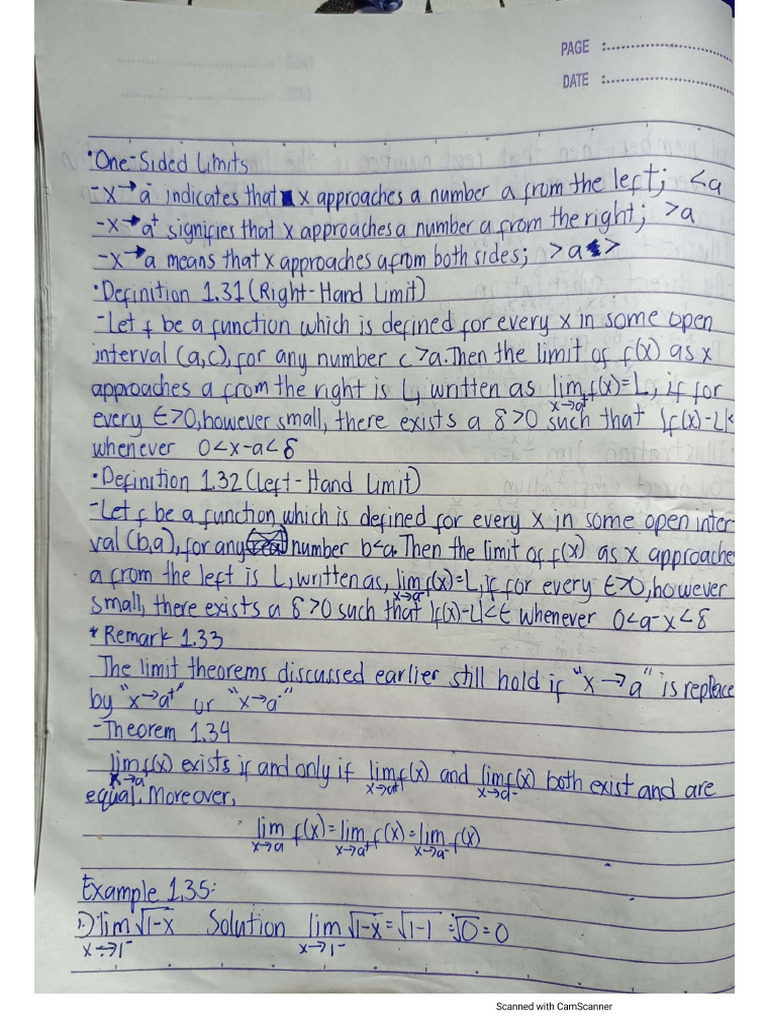 PAGE :
DATE :
•One-Sided Limits
-x→a⁻ indicates that x approaches a number a from the left; <a
-x→a⁺ signifies that x approaches a number a from the right; >a
-x→a means that x approaches a from both sides; >a<>
•Definition 1.31 (Right-Hand Limit)
-Let f be a function which is defined for every x in some open
interval (a,c), for any number c>a. Then the limit of f(x) as x
approaches a from the right is L, written as lim f(x)=L, if for
x→a⁺
every ϵ>0, however small, there exists a δ>0 such that |f(x)-L|<
whenever 0<x-a<δ
•Definition 1.32 (Left-Hand Limit)
-Let f be a function, which is defined for every x in some open inter
val (b,a), for any number b<a. Then the limit of f(x) as x approache
a from the left is L, written as, lim f(x)=L, if for every ϵ>0, however
x→a⁻
small, there exists a δ>0 such that |f(x)-L|<ϵ whenever 0<a-x<δ
* Remark 1.33
The limit theorems discussed earlier still hold if "x→a" is replace
by "x→a⁺" or "x→a⁻"
-Theorem 1.34
lim f(x) exists if and only if lim f(x) and lim f(x) both exist and are
x→a x→a⁺ x→a⁻
equal. Moreover,
lim f(x)=lim f(x)=lim f(x)
x→a x→a⁺ x→a⁻
Example 1.35:
1.) lim √1-x Solution lim √1-x=√1-1=√0=0
x→1⁻ x→1⁻
Scanned with CamScanner